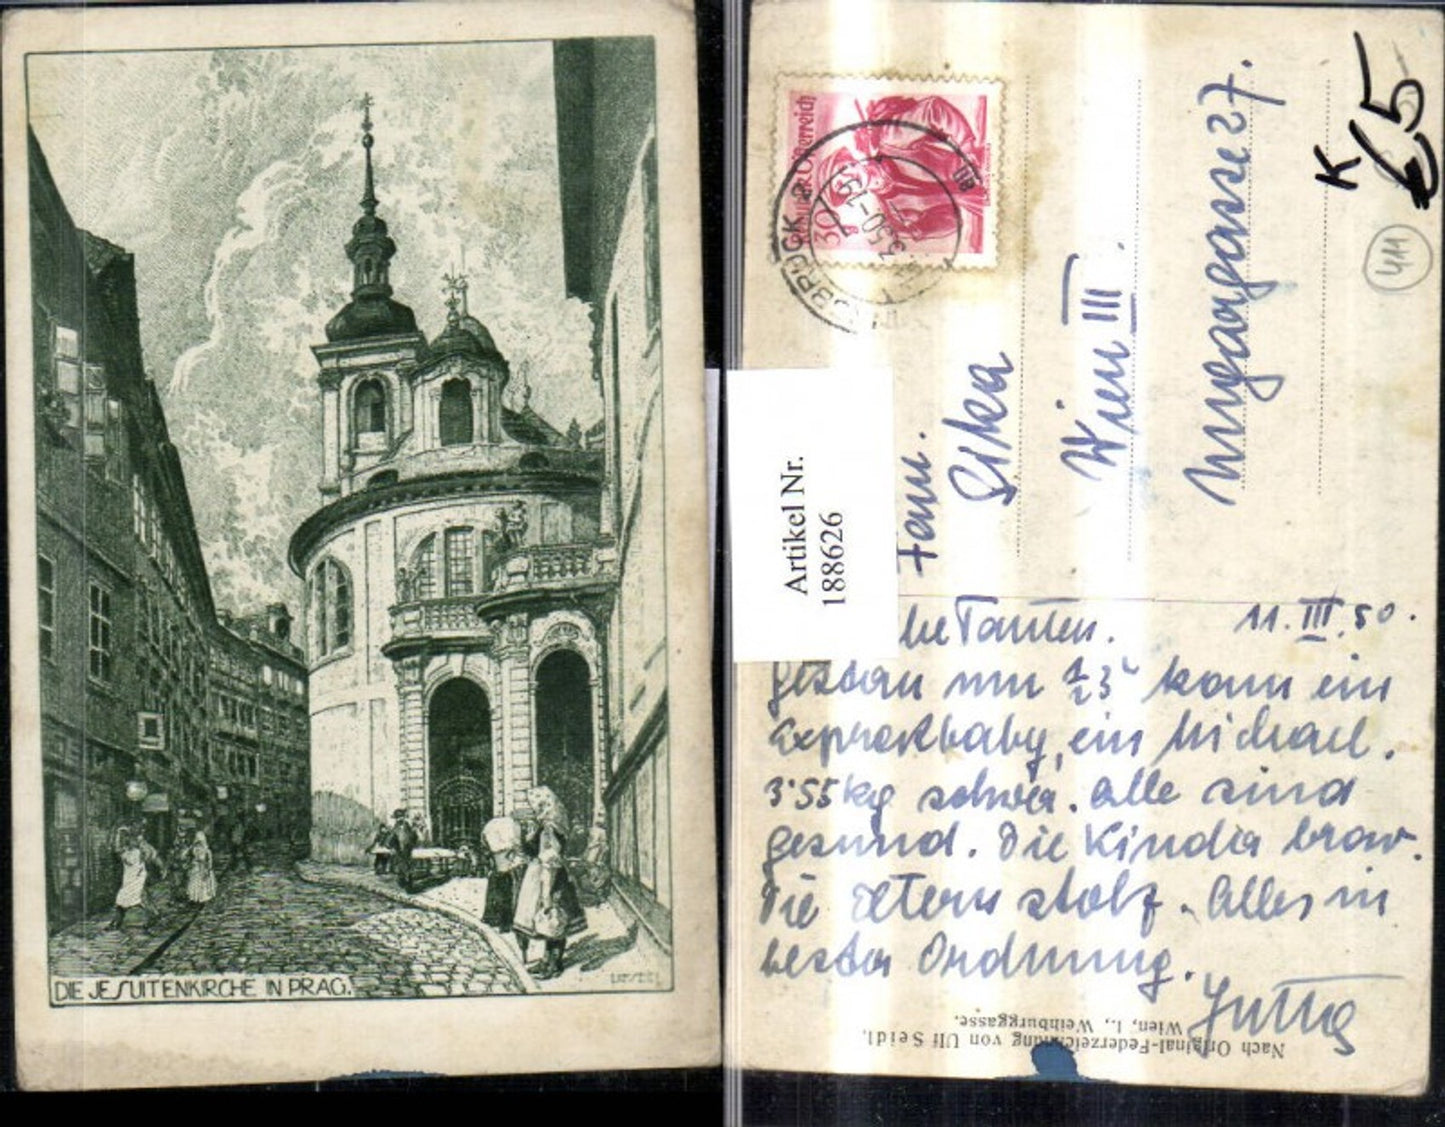 DIE JESUITENKIRCHE IN PRAG.
30 g
Österreich
3.50-19
Artikel Nr.
188626
Fam.
Wien III.
Ungargasse 27.
K
€5
411
11.III.50.
be Tanten.
Gestern um ½3h kam ein
Expressbaby, ein Michael.
3'55 kg schwer. Alle sind
gesund. Die Kinder brav.
Die Eltern stolz. Alles in
bester Ordnung.
Jutta
Nach Original-Federzeichnung von Ulf Seidl,
Wien, I., Weihburggasse.